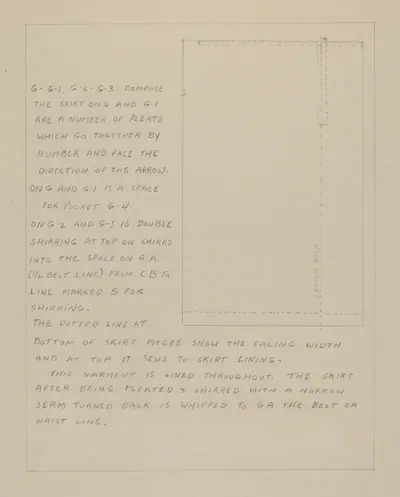 G- G-1, G-2- G-3. COMPOSE
THE SKIRT ON G AND G-1
ARE A NUMBER OF PLEATS
WHICH GO TOGETHER BY
NUMBER AND FACE THE
DIRECTION OF THE ARROW.
ON G AND G-1 IS A SPACE
FOR POCKET G-4.
ON G-2 AND G-3 IS DOUBLE
SHIRRING AT TOP ON SHIRRS
INTO THE SPACE ON G.A.
BELT LINE) FROM C.B. TO
LINE MARKED S FOR
SHIRRING.
THE DOTTED LINE AT
BOTTOM OF SKIRT PIECES SHOW THE FACING WIDTH
AND AT TOP IT SEWS TO SKIRT LINING.
THIS GARMENT IS LINED THROUGHOUT. THE SKIRT
AFTER BEING PLEATED & SHIRRED WITH A NARROW
SEAM TURNED BACK IS WHIPPED TO GA THE BELT OR
WAIST LINE.
CENTER BACK